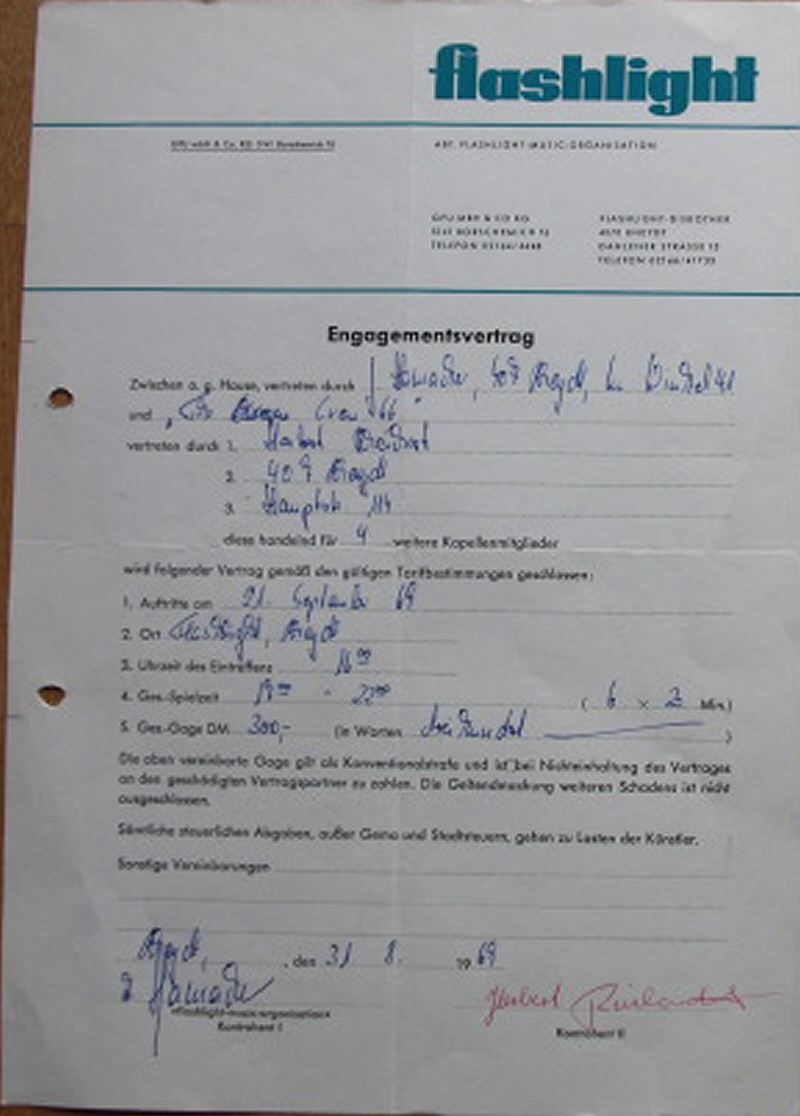 flashlight
ABT. FLASHLIGHT-MUSIC-ORGANISATION
GFU MBH & CO KG
FLASHLIGHT-DISKOTHEK
5141 BORSCHEMICH 76
4070 RHEYDT
TELEFON
DAHLENER STRASSE
TELEFON
Engagementsvertrag
Zwischen o. g. Hause, vertreten durch J. Hamacher, 407 Rheydt,
und
vertreten durch 1. Herbert
2. 407 Rheydt
3. Hauptstr. 114
diese handelnd für 4 weitere Kapellenmitglieder
wird folgender Vertrag gemäß den gültigen Tarifbestimmungen geschlossen:
1. Auftritte am 21. September 69
2. Ort Flashlight, Rheydt
3. Uhrzeit des Eintreffens 16 00
4. Ges.-Spielzeit - 22 00 ( 6 x Min.)
5. Ges.-Gage DM 300,- (in Worten dreihundert )
Die oben vereinbarte Gage gilt als Konventionalstrafe und ist bei Nichteinhaltung des Vertrages
an den geschädigten Vertragspartner zu zahlen. Die Geltendmachung weiteren Schadens ist nicht
ausgeschlossen.
Sämtliche steuerlichen Abgaben, außer Gema und Stadtsteuern, gehen zu Lasten der Künstler.
Sonstige Vereinbarungen
Rheydt, , den 31 8. 19 69
Hamacher
Herbert
»flashlight-music-organisation«
Kontrahent I
Kontrahent II